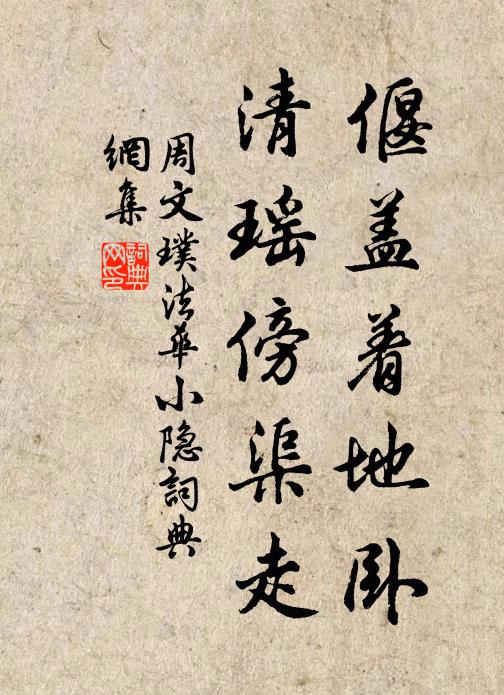 偃盖着地卧
清瑶傍渠走
周文璞法华小隐詞典
網集
詞典网印